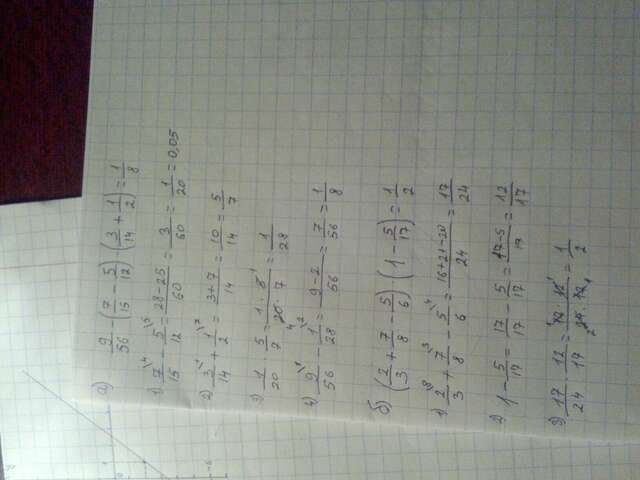 а) 9/56 - (7/15 - 5/12) · (3/14 + 1/2) = 1/8
1) 7\4/15 - 5\5/12 = 28-25/60 = 3/60 = 1/20 = 0,05
2) 3\1/14 + 1\7/2 = 3+7/14 = 10/14 = 5/7
3) 1/20 · 5/7 = 1·5 1/20 4·7 = 1/28
4) 9\1/56 - 1\2/28 = 9-2/56 = 7/56 = 1/8
б) (2/3 + 7/8 - 5/6) · (1 - 5/17) = 1/2
1) 2\8/3 + 7\3/8 - 5\4/6 = 16+21-20/24 = 17/24
2) 1 - 5/17 = 17/17 - 5/17 = 17-5/17 = 12/17
3) 17/24 · 12/17 = 1 17·12 1/2 24·17 1 = 1/2